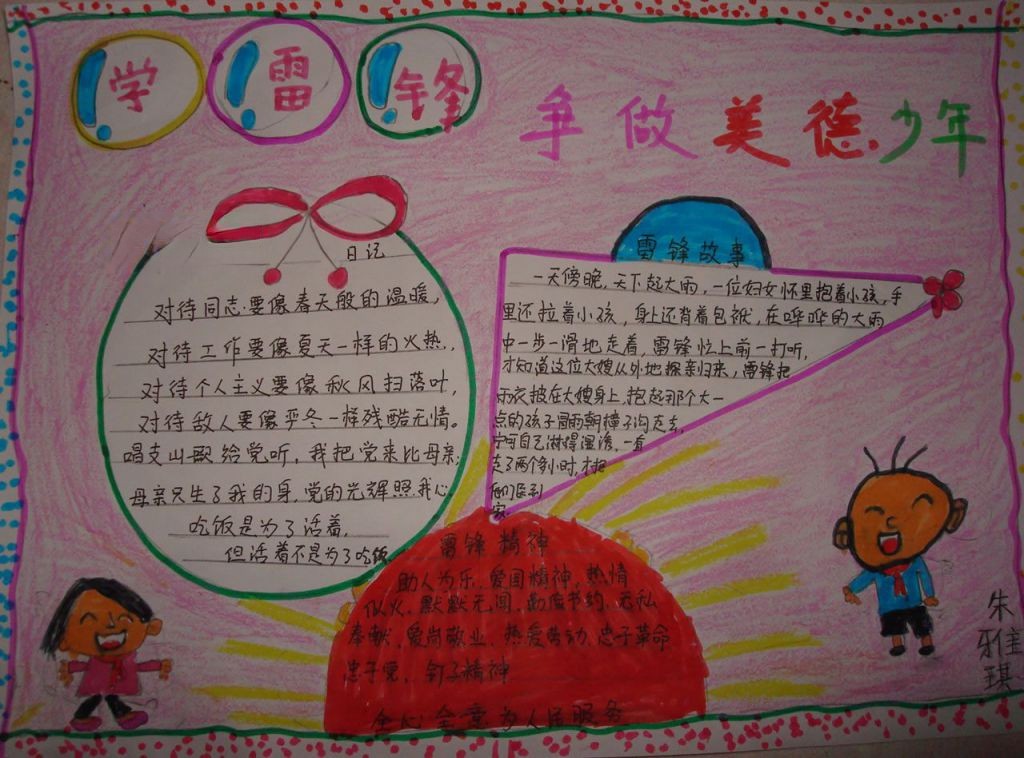 学雷锋
争做美德少年
日记
对待同志要像春天般的温暖,
对待工作要像夏天一样的火热,
对待个人主义要像秋风扫落叶,
对待敌人要像严冬一样残酷无情。
唱支山歌给党听,我把党来比母亲;
母亲只生了我的身,党的光辉照我心。
吃饭是为了活着,
但活着不是为了吃饭
雷锋故事
一天傍晚,天下起大雨,一位妇女怀里抱着小孩,手
里还拉着小孩,身上还背着包袱,在哗哗的大雨
中一步一滑地走着,雷锋忙上前一打听,
才知道这位大嫂从外地探亲归来,雷锋把
雨衣披在大嫂身上,抱起那个大一
点的孩子冒雨朝樟子沟走去,
宁可自己淋得湿透,一直
走了两个多小时,才把
她们送到
家
雷锋精神
助人为乐、爱国精神,热情
似火、默默无闻、勤俭节约、无私
奉献、爱岗敬业、热爱劳动、忠于革命
忠于党,钉子精神
全心全意为人民服务
朱
雅
琪